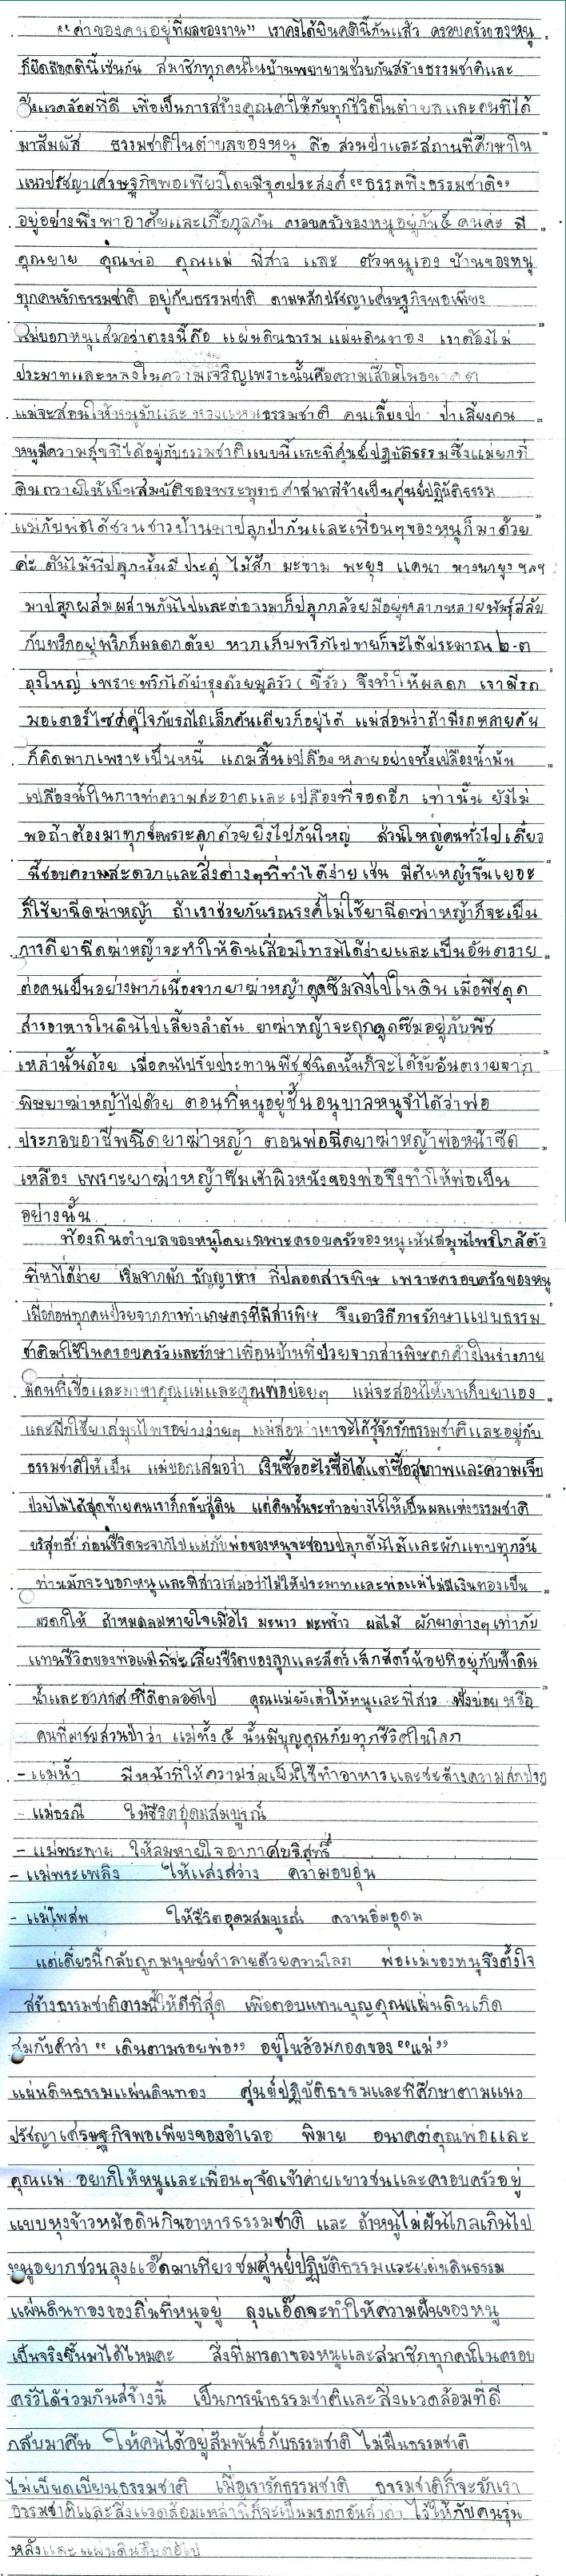 “ค่าของคนอยู่ที่ผลของงาน” เราคงได้ยินคตินี้กันแล้ว ครอบครัวของหนู
ก็ยึดถือคตินี้เช่นกัน สมาชิกทุกคนในบ้านพยายามช่วยกันสร้างธรรมชาติและ
สิ่งแวดล้อมที่ดี เพื่อเป็นการสร้างคุณค่าให้กับทุกชีวิตในตำบลและคนที่ได้
มาสัมผัส ธรรมชาติในตำบลของหนู คือ สวนป่าและสถานที่ศึกษาใน
แนวปรัชญาเศรษฐกิจพอเพียงโดยมีจุดประสงค์ “ธรรมพึ่งธรรมชาติ”
อยู่อย่างพึ่งพาอาศัยและเกื้อกูลกัน ครอบครัวของหนูอยู่กัน ๕ คนค่ะ มี
คุณยาย คุณพ่อ คุณแม่ พี่สาว และ ตัวหนูเอง บ้านของหนู
ทุกคนรักธรรมชาติ อยู่กับธรรมชาติ ตามหลักปรัชญาเศรษฐกิจพอเพียง
แม่บอกหนูเสมอว่าตรงนี้คือ แผ่นดินธรรม แผ่นดินทอง เราต้องไม่
ประมาทและหลงในความเจริญเพราะนั้นคือความเสื่อมในอนาคต
แม่จะสอนให้หนูรักและ หวงแหนธรรมชาติ คนเลี้ยงป่า ป่าเลี้ยงคน
หนูมีความสุขที่ได้อยู่กับธรรมชาติแบบนี้และที่ศูนย์ปฏิบัติธรรมซึ่งแม่ยกที่
ดินถวายให้เป็นสมบัติของพระพุทธศาสนาสร้างเป็นศูนย์ปฏิบัติธรรม
แม่กับพ่อได้ชวนชาวบ้านมาปลูกป่ากันและเพื่อนๆของหนูก็มาด้วย
ค่ะ ต้นไม้ที่ปลูกนั้นมี ประดู่ ไม้สัก มะขาม พะยูง แคนา หางนกยูง ฯลฯ
มาปลูกผสมผสานกันไปและต่อมาก็ปลูกกล้วยมีอยู่หลากหลายพันธุ์สลับ
กับพริกอยู่พริกก็ผลดกด้วย หากเก็บพริกไปขายก็จะได้ประมาณ ๒-๓
ถุงใหญ่ เพราะพริกได้บำรุงด้วยมูลวัว (ขี้วัว) จึงทำให้ผลดก เรามีรถ
มอเตอร์ไซค์คู่ใจกับรถไถเล็กคันเดียวก็อยู่ได้ แม่สอนว่าถ้ามีรถหลายคัน
ก็คิดมากเพราะเป็นหนี้ แถมสิ้นเปลืองหลายอย่างทั้งเปลืองน้ำมัน
เปลืองน้ำในการทำความสะอาดและเปลืองที่จอดอีก เท่านั้น ยังไม่
พอถ้าต้องมาทุกข์เพราะลูกด้วยยิ่งไปกันใหญ่ ส่วนใหญ่คนทั่วไปเดี๋ยว
นี้ชอบความสะดวกและสิ่งต่างๆที่ทำได้ง่าย เช่น มีต้นหญ้าขึ้นเยอะ
ก็ใช้ยาฉีดฆ่าหญ้า ถ้าเราช่วยกันรณรงค์ไม่ใช้ยาฉีดฆ่าหญ้าก็จะเป็น
การดียาฉีดฆ่าหญ้าจะทำให้ดินเสื่อมโทรมได้ง่ายและเป็นอันตราย
ต่อคนเป็นอย่างมากเนื่องจากยาฆ่าหญ้าดูดซึมลงไปในดิน เมื่อพืชดูด
สารอาหารในดินไปเลี้ยงลำต้น ยาฆ่าหญ้าจะถูกดูดซึมอยู่กับพืช
เหล่านั้นด้วย เมื่อคนไปรับประทานพืชชนิดนั้นก็จะได้รับอันตรายจาก
พิษยาฆ่าหญ้าไปด้วย ตอนที่หนูอยู่ชั้นอนุบาลหนูจำได้ว่าพ่อ
ประกอบอาชีพฉีดยาฆ่าหญ้า ตอนพ่อฉีดยาฆ่าหญ้าพ่อหน้าซีด
เหลือง เพราะยาฆ่าหญ้าซึมเข้าผิวหนังของพ่อจึงทำให้พ่อเป็น
อย่างนั้น
ท้องถิ่นตำบลของหนูโดยเฉพาะครอบครัวของหนูเน้นสมุนไพรใกล้ตัว
ที่หาได้ง่าย เริ่มจากผัก ธัญญาหาร ที่ปลอดสารพิษ เพราะครอบครัวของหนู
เมื่อก่อนทุกคนป่วยจากการทำเกษตรที่มีสารพิษ จึงเอาวิธีการรักษาแบบธรรม
ชาติมาใช้ในครอบครัวและรักษาเพื่อนบ้านที่ป่วยจากสารพิษตกค้างในร่างกาย
มีคนที่เชื่อและมาหาคุณแม่และคุณพ่อบ่อยๆ แม่จะสอนให้เขาเก็บยาเอง
และฝึกใช้ยาสมุนไพรอย่างง่ายๆ แม่สอนว่าเขาจะได้รู้จักรักธรรมชาติและอยู่กับ
ธรรมชาติให้เป็น แม่บอกเสมอว่า เงินซื้ออะไรซื้อได้แต่ซื้อสุขภาพและความเจ็บ
ป่วยไม่ได้สุดท้ายคนเราก็กลับสู่ดิน แต่ดินนั้นจะทำอย่างไรให้เป็นผลแห่งธรรมชาติ
บริสุทธิ์ ก่อนชีวิตจะจากไป แม่กับพ่อของหนูจะชอบปลูกต้นไม้และผักแทบทุกวัน
ท่านมักจะบอกหนูและพี่สาวเสมอว่าไม่ให้ประมาทและพ่อแม่ไม่มีเงินทองเป็น
มรดกให้ ถ้าหมดลมหายใจเมื่อไร มะนาว มะพร้าว ผลไม้ ผักยาต่างๆเท่ากับ
แทนชีวิตของพ่อแม่ที่จะเลี้ยงชีวิตของลูกและสัตว์เล็กสัตว์น้อยที่อยู่กับฟ้าดิน
น้ำและอากาศที่ดีตลอดไป คุณแม่ยังเล่าให้หนูและพี่สาว ฟังบ่อย หรือ
คนที่มาชมสวนป่าว่า แม่ทั้ง ๕ นั้นมีบุญคุณกับทุกชีวิตในโลก
- แม่น้ำ มีหน้าที่ให้ความร่มเย็นใช้ทำอาหารและชะล้างความสกปรก
- แม่ธรณี ให้ชีวิตอุดมสมบูรณ์
- แม่พระพาย ให้ลมหายใจอากาศบริสุทธิ์
- แม่พระเพลิง ให้แสงสว่าง ความอบอุ่น
- แม่โพสพ ให้ชีวิตอุดมสมบูรณ์ ความอิ่มอุดม
แต่เดี๋ยวนี้กลับถูกมนุษย์ทำลายด้วยความโลภ พ่อแม่ของหนูจึงตั้งใจ
สร้างธรรมชาติตรงนี้ให้ดีที่สุด เพื่อตอบแทนบุญคุณแผ่นดินเกิด
สมกับคำว่า “เดินตามรอยพ่อ” อยู่ในอ้อมกอดของ “แม่”
แผ่นดินธรรมแผ่นดินทอง ศูนย์ปฏิบัติธรรมและที่ศึกษาตามแนว
ปรัชญาเศรษฐกิจพอเพียงของอำเภอ พิมาย อนาคตคุณพ่อและ
คุณแม่ อยากให้หนูและเพื่อนๆจัดเข้าค่ายเยาวชนและครอบครัวอยู่
แบบหุงข้าวหม้อดินกินอาหารธรรมชาติ และ ถ้าหนูไม่ฝันไกลเกินไป
หนูอยากชวนลุงแอ๊ดมาเที่ยวชมศูนย์ปฏิบัติธรรมและแผ่นดินธรรม
แผ่นดินทองของถิ่นที่หนูอยู่ ลุงแอ๊ดจะทำให้ความฝันของหนู
เป็นจริงขึ้นมาได้ไหมคะ สิ่งที่มารดาของหนูและสมาชิกทุกคนในครอบ
ครัวได้ร่วมกันสร้างนี้ เป็นการนำธรรมชาติและสิ่งแวดล้อมที่ดี
กลับมาคืน ให้คนได้อยู่สัมพันธ์กับธรรมชาติ ไม่ฝืนธรรมชาติ
ไม่เบียดเบียนธรรมชาติ เมื่อเรารักธรรมชาติ ธรรมชาติก็จะรักเรา
ธรรมชาติและสิ่งแวดล้อมเหล่านี้ก็จะเป็นมรดกอันล้ำค่า ไว้ให้กับคนรุ่น
หลังและแผ่นดินสืบต่อไป